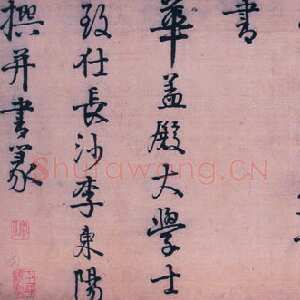 書
華盖殿大學士
致仕長沙李東陽
撰并書篆
Shufawang.CN